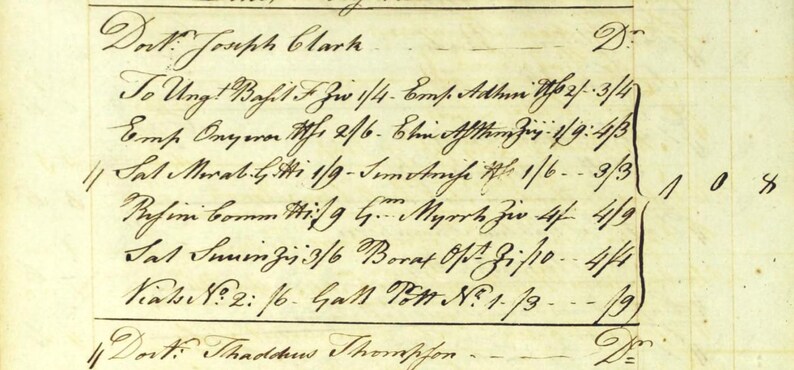 Doctr. Joseph Clark - - - - Dr
To Ungt Basil F ℥iv 1/4 - Emp Adhesi ℔ſs 2/- 3/4
Emp Onyeroe ℔ſs 2/6 - Elix Asthm ℥ij - 1/9: 4/3
Sal Mirab: G ℔i 1/9 - Sem Anisi ℔ſs 1/6 - - 3/3
1 0 8
Resini Comm ℔i: /9 Gm Myrrh ℥iv 4/- 4/9
Sal Succin ℥ij 3/6 Borax Opt ℥i /10 - - 4/4
Vials No. 2: /6 - Gall Pott No. 1 - /3 - - - /9
Doctr. Thaddeus Thompson - - - - Dr